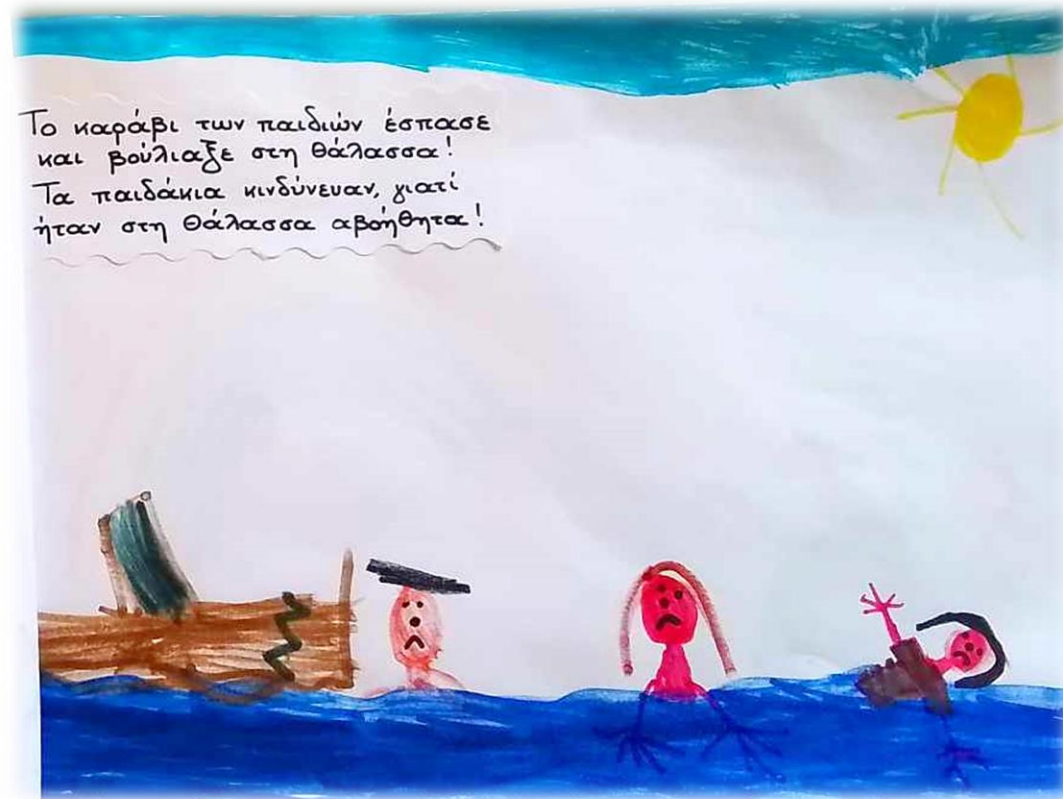 Το καράβι των παιδιών έσπασε
και βούλιαξε στη θάλασσα!
Τα παιδάκια κινδύνευαν, γιατί
ήταν στη θάλασσα αβοήθητα!